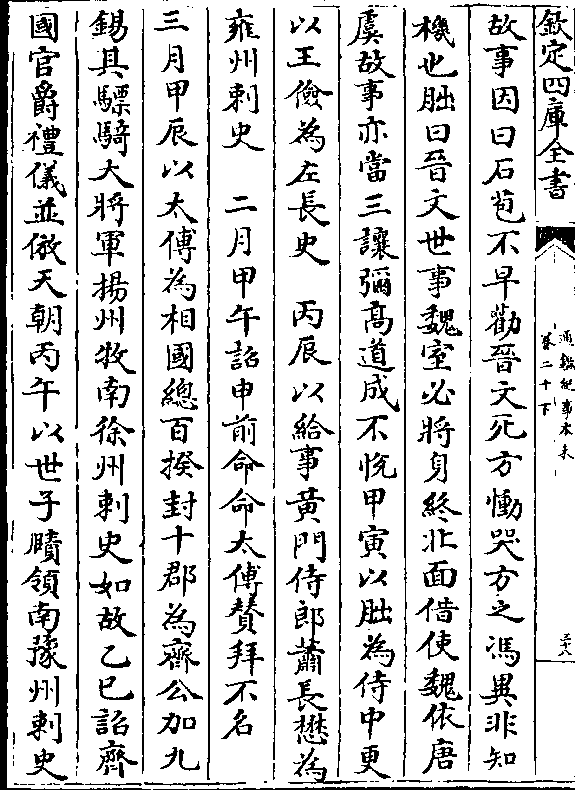 欽定四庫全書
通鑑紀事本末
卷二十下
三十八
故事因曰石苞不早勸晉文死方慟哭方之馮異非知
機也朏曰晉文世事魏室必將身終北面借使魏依唐
虞故事亦當三讓彌髙道成不悅甲寅以朏為侍中更
以王儉為左長史　丙辰以給事黄門侍郎蕭長懋為
雍州刺史　二月甲午詔申前命命太傅贊拜不名
三月甲辰以太傅為相國總百揆封十郡為齊公加九
錫其驃騎大將軍揚州牧南徐州刺史如故乙巳詔齊
國官爵禮儀並倣天朝丙午以世子賾領南豫州刺史